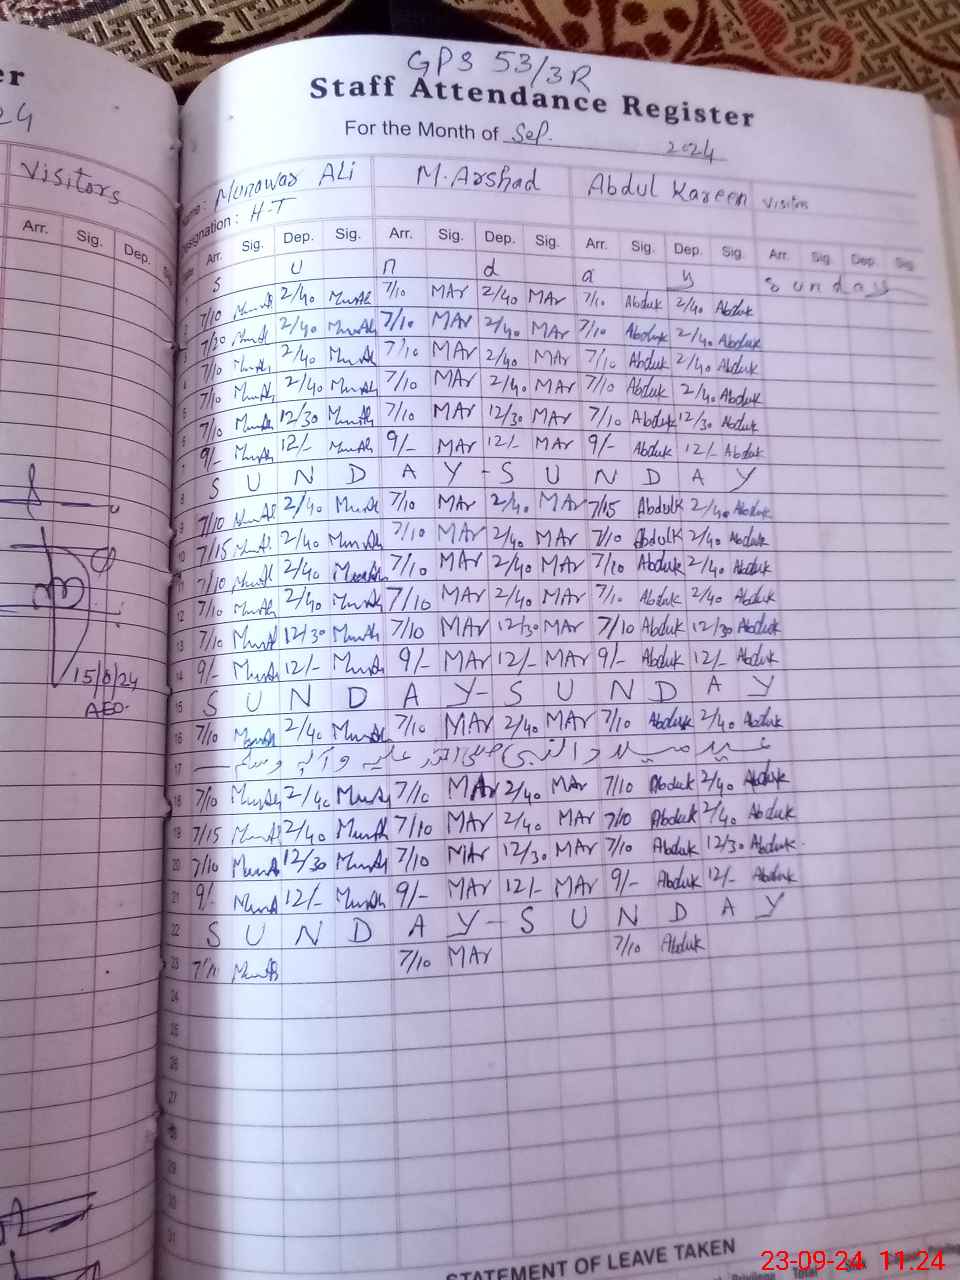 GPS 53/3R
Staff Attendance Register
For the Month of Sep. 2024
er
24
Visitors
Arr. Sig. Dep.
Name : Munawar Ali M.Arshad Abdul Kareem Visitors
Designation : H-T
Arr. Sig. Dep. Sig. Arr. Sig. Dep. Sig. Arr. Sig. Dep. Sig. Arr. Sig. Dep. Sig.
1 S u n d a y Sunday
2 7/10 MunAli 2/40 MunAli 7/10 MAr 2/40 MAr 7/10 Abduk 2/40 Abduk
3 7/30 MunAli 2/40 MunAli 7/10 MAr 2/40 MAr 7/10 Abduk 2/40 Abduk
4 7/10 MunAli 2/40 MunAli 7/10 MAr 2/40 MAr 7/10 Abduk 2/40 Abduk
5 7/10 MunAli 2/40 MunAli 7/10 MAr 2/40 MAr 7/10 Abduk 2/40 Abduk
6 7/10 MunAli 12/30 MunAli 7/10 MAr 12/30 MAr 7/10 Abduk 12/30 Abduk
7 9/- MunAli 12/- MunAli 9/- MAr 12/- MAr 9/- Abduk 12/- Abduk
8 S U N D A Y - S U N D A Y
9 7/10 MunAli 2/40 MunAli 7/10 MAr 2/40 MAr 7/15 Abdulk 2/40 Abduk
10 7/15 MunAli 2/40 MunAli 7/10 MAr 2/40 MAr 7/10 Abdulk 2/40 Abduk
11 7/10 MunAli 2/40 MunAli 7/10 MAr 2/40 MAr 7/10 Abduk 2/40 Abduk
12 7/10 MunAli 2/40 MunAli 7/10 MAr 2/40 MAr 7/10 Abduk 2/40 Abduk
13 7/10 MunAli 12/30 MunAli 7/10 MAr 12/30 MAr 7/10 Abduk 12/30 Abduk
14 9/- MunAli 12/- MunAli 9/- MAr 12/- MAr 9/- Abduk 12/- Abduk
15 S U N D A Y - S U N D A Y
16 7/10 MunAli 2/40 MunAli 7/10 MAr 2/40 MAr 7/10 Abduk 2/40 Abduk
17 عید میلاد النبی صلی اللہ علیہ و آلہ وسلم
18 7/10 MunAli 2/40 MunAli 7/10 MAr 2/40 MAr 7/10 Abduk 2/40 Abduk
19 7/15 MunAli 2/40 MunAli 7/10 MAr 2/40 MAr 7/10 Abduk 2/40 Abduk
20 7/10 MunAli 12/30 MunAli 7/10 MAr 12/30 MAr 7/10 Abduk 12/30 Abduk
21 9/- MunAli 12/- MunAli 9/- MAr 12/- MAr 9/- Abduk 12/- Abduk
22 S U N D A Y - S U N D A Y
23 7/10 MunAli 7/10 MAr 7/10 Abduk
24
25
26
27
28
29
30
31
15/8/24
AEO.
STATEMENT OF LEAVE TAKEN
Privilege Total
23-09-24 11:24